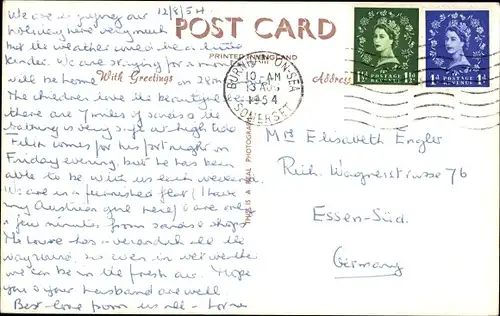 We are enjoying our 12/8/54
holiday here very much
but the weather could be a little
kinder. We are staying for a month
will be home on 28th
The children love the beautiful sea
there are 7 miles of sands & the
bathing is very safe at high tide
comes for his fortnight on
Friday evening, but he has been
able to be with us each weekend
We are in a furnished flat (I have
my Austrian girl here) & are only
a few minutes from sands & shops
The house has a verandah all the
way round, so even in wet weather
we can be in the fresh air. Hope
you & your husband are well.
Best love from us all - Lorna
POST CARD
PRINTED IN ENGLAND
With Greetings
Address
THIS IS A REAL PHOTOGRAPH
BURNHAM-ON-SEA
10 - AM
13 AUG
1954
SOMERSET
1½D POSTAGE REVENUE 1½D
1D POSTAGE REVENUE 1D
Elisabeth Engler
Rich. Wagnerstrasse 76
Essen-Süd.
Germany